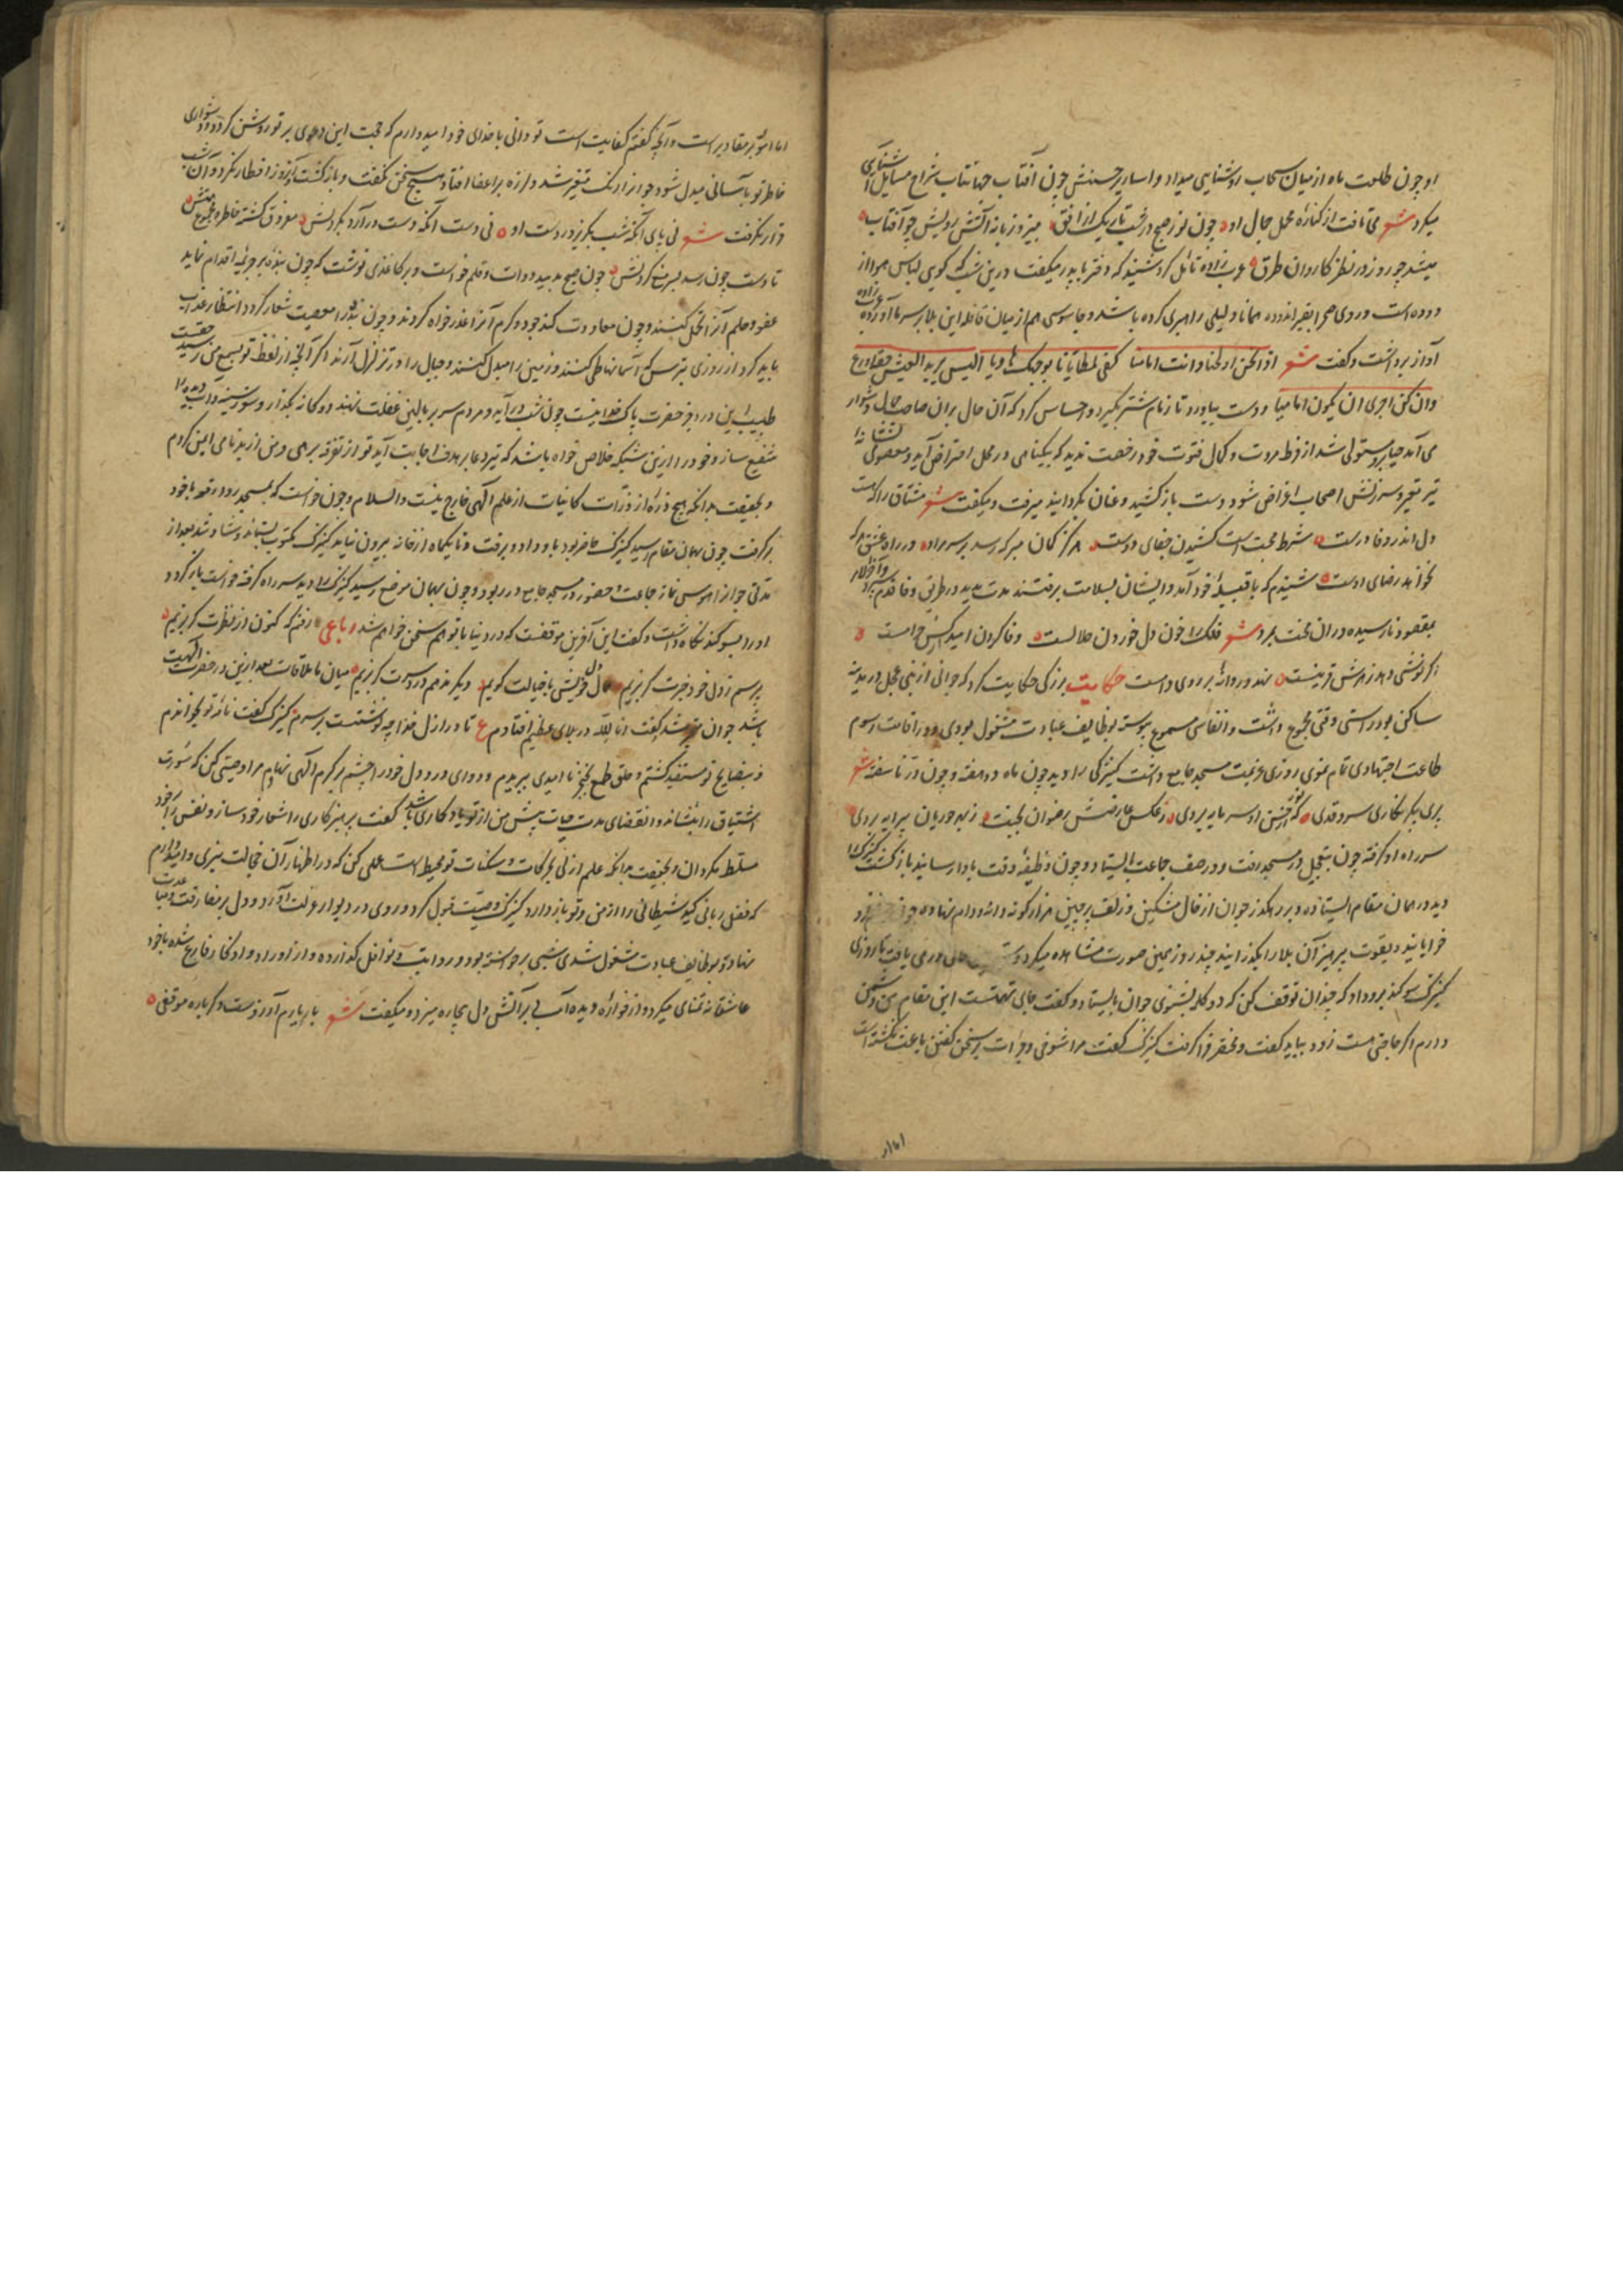 او چون طلعت ماه از میان سحاب روشنایی میداد و اساریر حسنش چون آفتاب جهانتاب شعاع
میکرد شعر می تافت از کناره محمل جمال او چون نور صبح در شب تاریک از افق میزد زبانه آتش رویش چو آفتاب
میشد چو روز در نظر کاروان طرق عرب زاده تامل کرد شنید که دختر با پدر میگفت درین شب که کوی لباس
دوده است و روی صحرا بقیر اندوده همانا دلیلی راهبری کرده باشد و جاسوسی هم از میان قافله این بلا بر سر ما آورده
آواز برداشت و گفت شعر اذا نحن ادلجنا وانت امامنا کفی لمطایانا بوجهک هادیا الیس یرید العیش
وان کن اجری ان یکون امامیا دست بیاورد تا زمام شتر بگیرد و احساس کرد که آن حال بران صاحب جمال دشوار
می آید حیا برو مستولی شد از فرط مروت و کمال فتوت خود رخصت ندید که بیگناهی در محل اعتراض آید و معصومی
تیر تعییر و سرزنش اصحاب اغراض شود دست باز کشید و عنان بگردانید میرفت و میگفت شعر مشتاق را که هست
دل اندر وفا درست شرط محبت است کشیدن جفای دوست هرگز گمان مبر که رسد بر سر مراد در راه عشق هر که
نخواهد رضای دوست شنیدم که با قبیله خود آمد و ایشان بسلامت برفتند مدت مدید در طریق وفا قدم
بمقصود نارسیده در ان محنت بمرد شعر فلک را خون دل خوردن حلالست وفا کردن امید کس حرامست
حکایت بزرگی حکایت کرد که جوانی از بنی عجل در مدینه
ساکن بود در استی وقتی مجموع داشت و انفاسی مسموع پیوسته بوظایف عبادت مشغول بودی و در اقامت رسوم
طاعت اجتهادی تمام نمودی روزی عزیمت مسجد جامع داشت کنیزکی را دید چون ماه دو هفته و چون در ناسفته شعر
پری پیکر نگاری سرو قدی که از حسن او سر مایه بردی ز عکس عارضش رضوان بجنت ز بهر حوریان پیرایه بردی
سر راه او گرفته چون بتعجیل در مسجد رفت و در صف جماعت بایستاد و چون وظیفه وقت بادا رسانید باز گشت کنیزک را
دید در همان مقام ایستاده و بر رهگذر جوان از خال مشکین و زلف پرچین هزار گونه دانه و دام نهاده جوان
فرا یابانید و بقوت پرهیز آن بلا را بگذرانید چند روز همین صورت مشاهده میکرد تا روزی
کنیزک سوگند برو داد که چندان توقف کن که دو کلمه بشنوی جوان بایستاد و گفت جای تهمتست این مقام من دشمن
دارم اگر حاجتی هست زود بباید گفت و مختصر فرا گرفت کنیزک گفت مرا شوقی وجرات بر سخن گفتن باعث نگشته است
اما امور
اما امور بمقادیر است و آنچه گفتم کفایت است تو دانی با خدای خود امیدوارم که حجت این دعوی بر تو روشن گردد و دشواری
خاطر تو بآسانی مبدل شود جوانرا رنگ متغیر شد و لرزه بر اعضا افتاد و هیچ سخن نگفت و باز گشت و آنروز افطار نکرد و آن شب
قرار نگرفت شعر نی پای آنکه شب بگریزد ز دست او نی دست آنکه دست در آرد بگردنش
تا دست چون رسد بسر زلف گردنش چون صبح بدمید دوات و قلم خواست و بر کاغذی نوشت که چون بنده بر جریمه اقدام نماید
عفو و حلم آنرا تحمل کنند و چون معاودت کند جود و کرم آنرا عذر خواه گردند و چون بنده را معصیت شعار گردد انتظار عذاب
باید کرد از روزی بترس که آسمانها طی کنند و زمین را مبدل کنند و جبال را در تزلزل آرند اگر آنچه از لفظ تو بسمع من رسید
طبیب این درد جز حضرت پاک خدا نیست چون شب در آید و مردم سر بر بالین غفلت نهند دوگانه بگذار و سوز سینه و آب دیده را
شفیع ساز و خود را ازین شبکه خلاص خواه باشد که تیر دعا بر هدف اجابت آید تو از تفرقه برهی و من از بدنامی ایمن گردم
و بحقیقت بدانکه هیچ ذره از ذرات کاینات از علم الهی خارج نیست والسلام و چون خواست که بمسجد رود رقعه با خود
برگرفت چون بهمان مقام رسید کنیزک حاضر بود باو داد و برفت و تا یکماه از خانه بیرون نیامد کنیزک مکتوب بستاند و شاد شد بعد از
مدتی جوانرا هوس نماز جماعت و حضور در مسجد جامع در ربود و چون بهمان موضع رسید کنیزک را دید سر راه گرفته خواست باز گردد
او را بسوگند نگاه داشت و گفت این آخرین موقفست که در دنیا با تو هم سخن خواهم شد رباعی رفتم که کنون از نظرت گریزیم
پرسم ز دل خود خبرت گریزیم حال دل خویش با خیالت گویم دیگر ندهم دردسرت گریزیم میان ما ملاقات بعد ازین در حضرت الهیت
باشد جوان متغیر شد گفت انا لله در بلای عظیم افتادم ع تا در ازل خدا چه نوشتست بر سرم کنیزک گفت نامه تو بخواندم
و بنصایح تو مستفید گشتم و حلق طمع بخنجر نا امیدی ببریدم و دوای درد دل خود را چشم بر کرم الهی نهادم مرا وصیتی کن که سورت
اشتیاق را بنشاند و انقضای مدت حیات پیش من از تو یادگاری باشد گفت پرهیزکاری را شعار خود ساز و نفس را بر خود
مسلط مگردان و بحقیقت بدانکه علم ازلی بحرکات و سکنات تو محیط است عملی کن که در اظهار آن خجالت نبری و امیدوارم
که فضل ربانی کید شیطانی را از من و تو باز دارد کنیزک وصیت قبول کرد و روی در دیوار عزلت آورد و دل بر مفارقت
نهاد و بوظایف عبادت مشغول شدی شبی برخواسته بود و رواتب و نوافل گذارده و از اوراد و اذکار فارغ شده با خود
عاشقانه تمنای میکرد و از فواره دیده آبی بر آتش دل بیچاره میزد و میگفت شعر با یارم آرزوست دگر باره موقفی